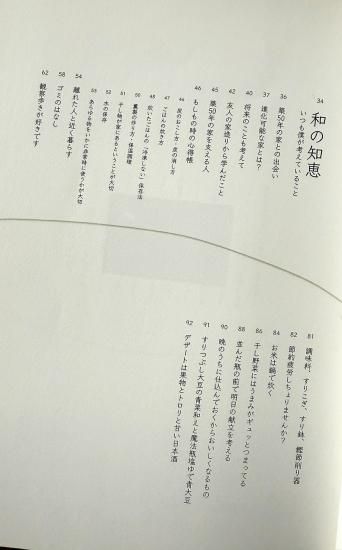 34
和の知恵
いつも僕が考えていること
36
築50年の家との出会い
37
進化可能な家とは？
40
将来のことも考えて
42
友人の家造りから学んだこと
45
築50年の家を支える人
46
もしもの時の心得帳
46
炭のおこし方・炭の消し方
47
ごはんの炊き方
48
炊いたごはんの「冷凍しない」保存法
50
糀の作り方・保温調理
51
干し物が家にあるということが大切
52
水の保存
53
あらゆる物をいかに非常時に使うかが大切
54
離れた人と近く暮らす
58
ゴミのはなし
62
観察歩きが好きです
81
調味料、すりこぎ、すり鉢、鰹節削り器
82
節約疲労しちょりませんか？
84
お米は鍋で炊く
86
干し野菜にはうまみがギュッとつまってる
88
並んだ瓶の前で明日の献立を考える
90
晩のうちに仕込んでおくからおいしくなるもの
91
すりつぶし大豆の青菜和えと魔法瓶塩ゆで青大豆
92
デザートは果物とトロリと甘い日本酒